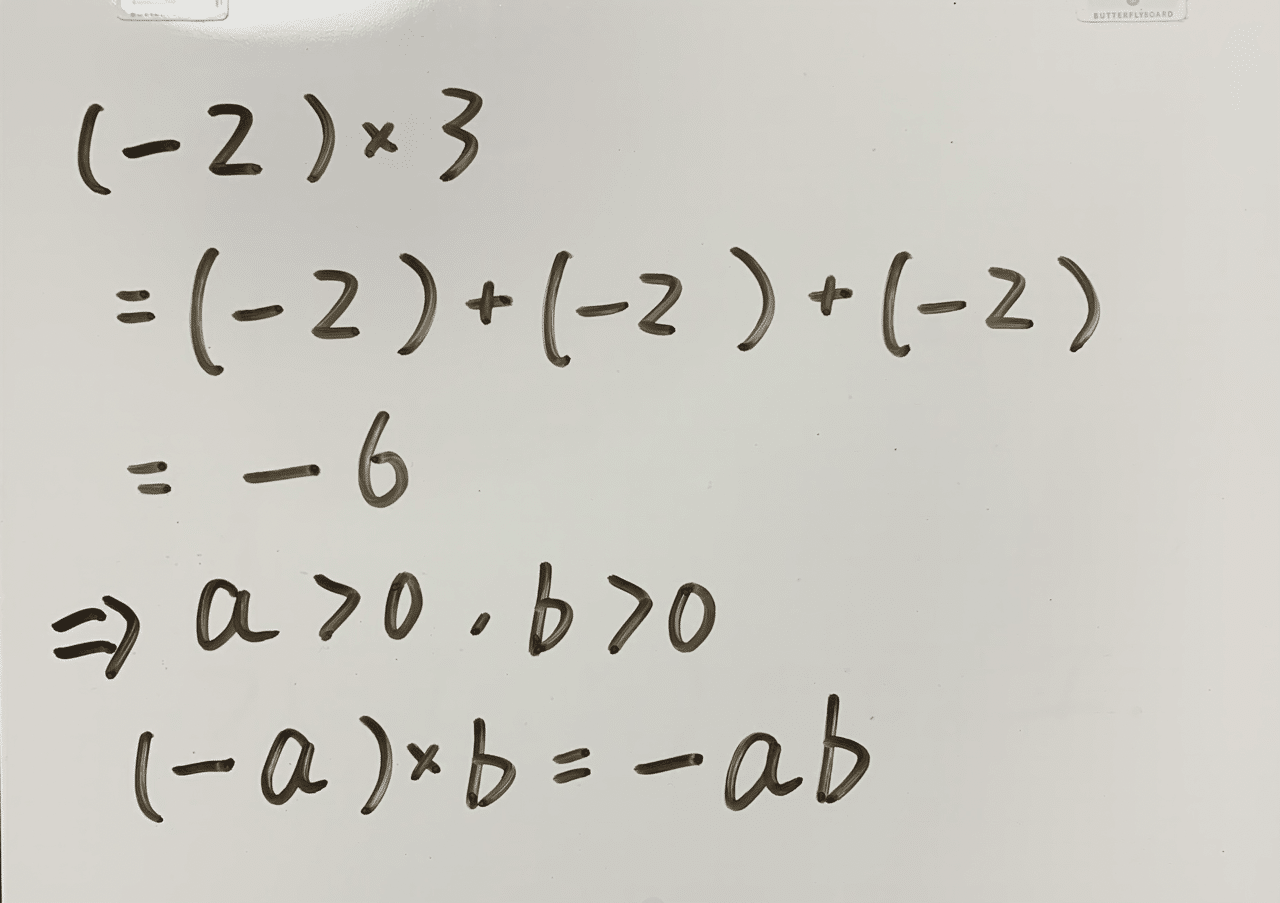 BUTTERFLYBOARD
(-2)×3
=(-2)+(-2)+(-2)
= -6
⇒ a>0, b>0
(-a)×b=-ab